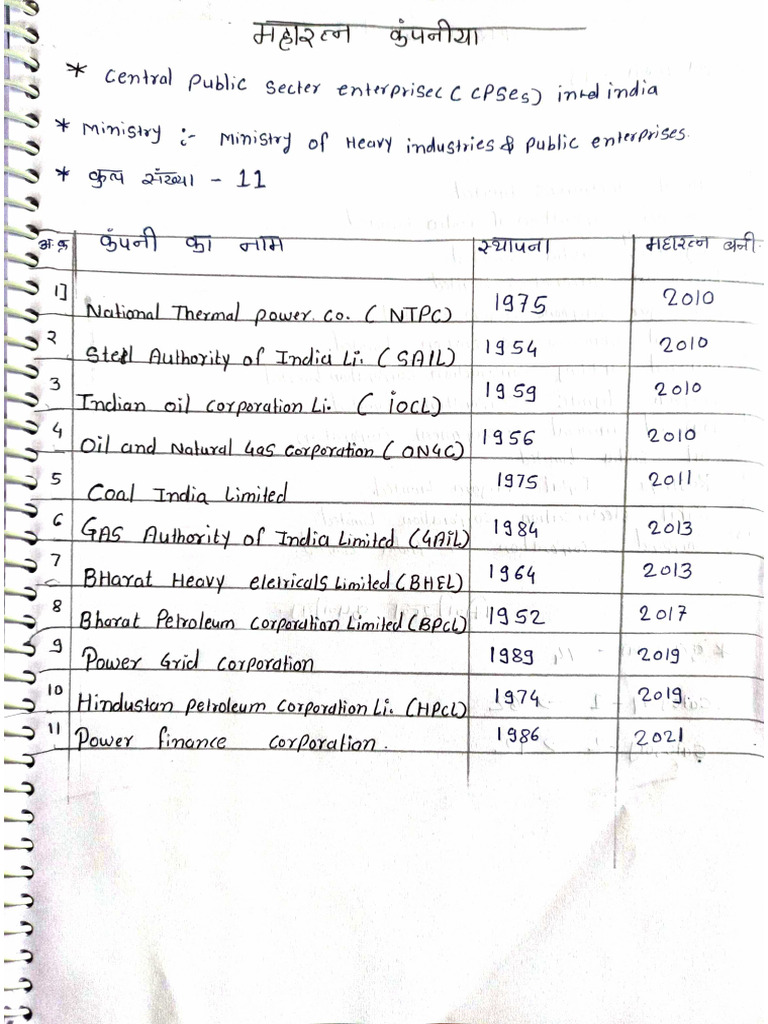 महारत्न कंपनीया
* Central Public Secter enterprisec (CPSEs) in India
* Ministry :- Ministry of Heavy industries & Public enterprises.
* कुल संख्या - 11
अ.क्र कंपनी का नाम स्थापना महारत्न बनी
1] National Thermal power co. (NTPC) 1975 2010
2 Steel Authority of India Li. (SAIL) 1954 2010
3 Indian oil corporation Li. (iOCL) 1959 2010
4 Oil and Natural Gas corporation (ONGC) 1956 2010
5 Coal India Limited 1975 2011
6 GAS Authority of India Limited (GAiL) 1984 2013
7 BHarat Heavy eletricals Limited (BHEL) 1964 2013
8 Bharat Petroleum Corporation Limited (BPCL) 1952 2017
9 Power Grid corporation 1989 2019
10 Hindustan petroleum Corporation Li. (HPCL) 1974 2019.
11 Power finance corporation. 1986 2021